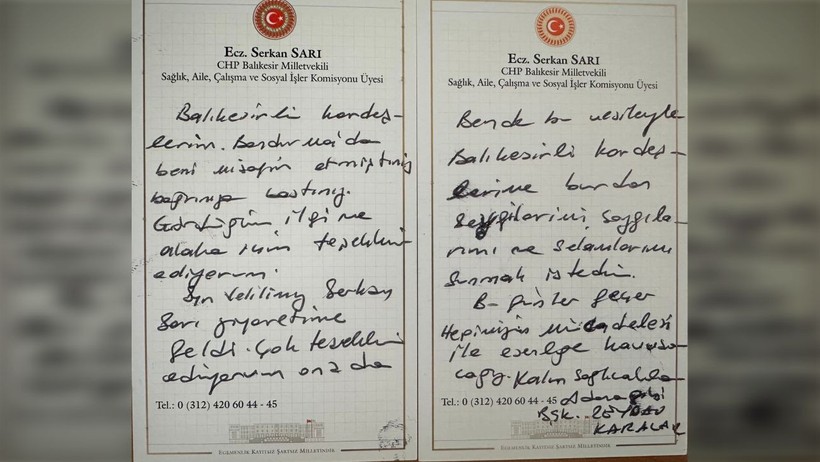 Ecz. Serkan SARI
CHP Balıkesir Milletvekili
Sağlık, Aile, Çalışma ve Sosyal İşler Komisyonu Üyesi
Balıkesirli kardeş-
lerim. Bandırma'da
beni misafir etmiştiniz
bağrınıza bastınız.
Gördüğüm ilgi ve
alaka için teşekkür
ediyorum.
Sn Vekilimiz Serkan
Sarı ziyaretime
geldi. Çok teşekkür
ediyorum ona da
Tel.: 0 (312) 420 60 44 - 45
EGEMENLİK KAYITSIZ ŞARTSIZ MİLLETİNDİR
Ecz. Serkan SARI
CHP Balıkesir Milletvekili
Sağlık, Aile, Çalışma ve Sosyal İşler Komisyonu Üyesi
Bende bu vesileyle
Balıkesirli kardeş-
lerime burdan
sevgilerimi, saygıla-
rımı ve selamlarımı
sunmak istedim.
Bu günler geçer
Hepimizin mücadelesi
ile eserliğe kavuşa-
cağız. Kalın sağlıcakla
Tel.: 0 (312) 420 60 44 - 45 Adana
Bşk. ZEYDAN
KARALAR
EGEMENLİK KAYITSIZ ŞARTSIZ MİLLETİNDİR